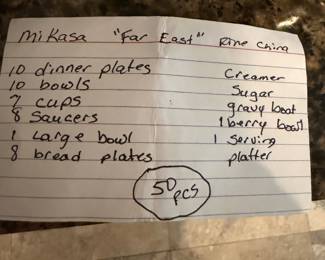 Mikasa "Far East" Fine China
10 dinner plates
10 bowls
7 cups
8 Saucers
1 Large bowl
8 bread plates
Creamer
Sugar
gravy boat
1 berry bowl
1 Serving
platter
50
pcs